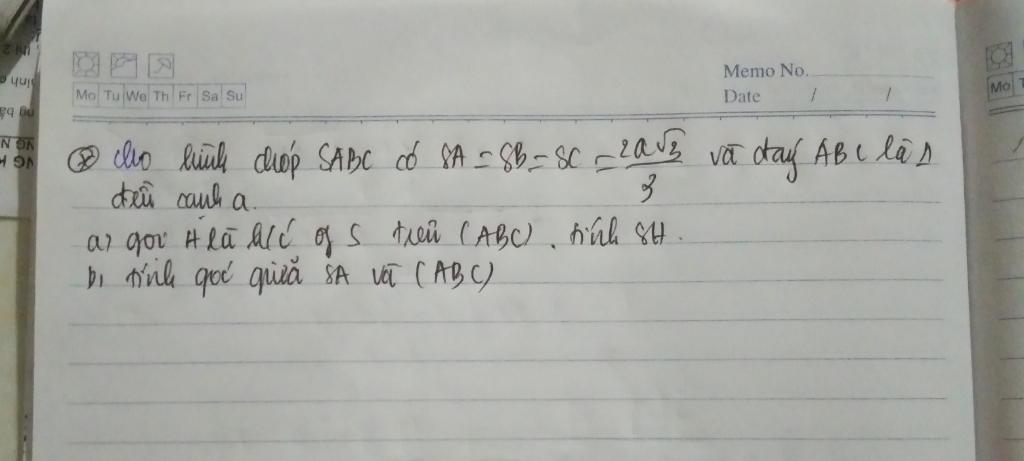 Memo No.
Mo Tu We Th Fr Sa Su
Date / /
⑧ cho hình chóp SABC có SA = SB = SC = 2a√3/3 và đáy ABC là Δ
đều cạnh a.
a) gọi H là h/c of S trên (ABC). tính SH.
b) tính góc giữa SA và (ABC)
Mo